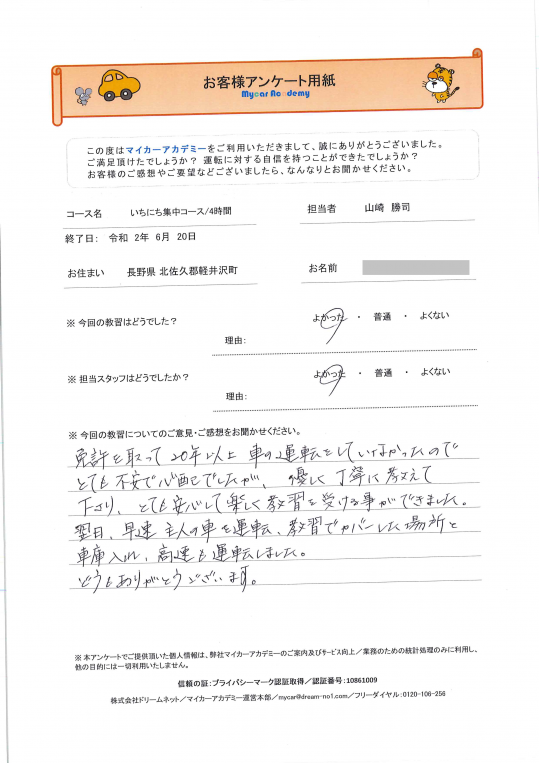 お客様アンケート用紙
Mycar Academy
この度はマイカーアカデミーをご利用いただきまして、誠にありがとうございました。
ご満足頂けたでしょうか？ 運転に対する自信を持つことができたでしょうか？
お客様のご感想やご要望などございましたら、なんなりとお聞かせください。
コース名 いちにち集中コース/4時間 担当者 山崎 勝司
終了日: 令和 2年 6月 20日
お住まい 長野県 北佐久郡軽井沢町 お名前
※ 今回の教習はどうでした？ よかった ・ 普通 ・ よくない
理由:
※ 担当スタッフはどうでしたか？ よかった ・ 普通 ・ よくない
理由:
※ 今回の教習についてのご意見・ご感想をお聞かせください。
免許を取って20年以上車の運転をしていなかったので
とても不安で心配でしたが、優しく丁寧に教えて
下さり、とても安心して楽しく教習を受ける事ができました。
翌日、早速主人の車を運転、教習でカバーした場所と
車庫入れ、高速も運転しました。
どうもありがとうございます。
※ 本アンケートでご提供頂いた個人情報は、弊社マイカーアカデミーのご案内及びサービス向上／業務のための統計処理のみに利用し、
他の目的には一切利用いたしません。
信頼の証：プライバシーマーク認証取得／認証番号：10861009
株式会社ドリームネット／マイカーアカデミー運営本部／mycar@dream-no1.com／フリーダイヤル：0120-106-256